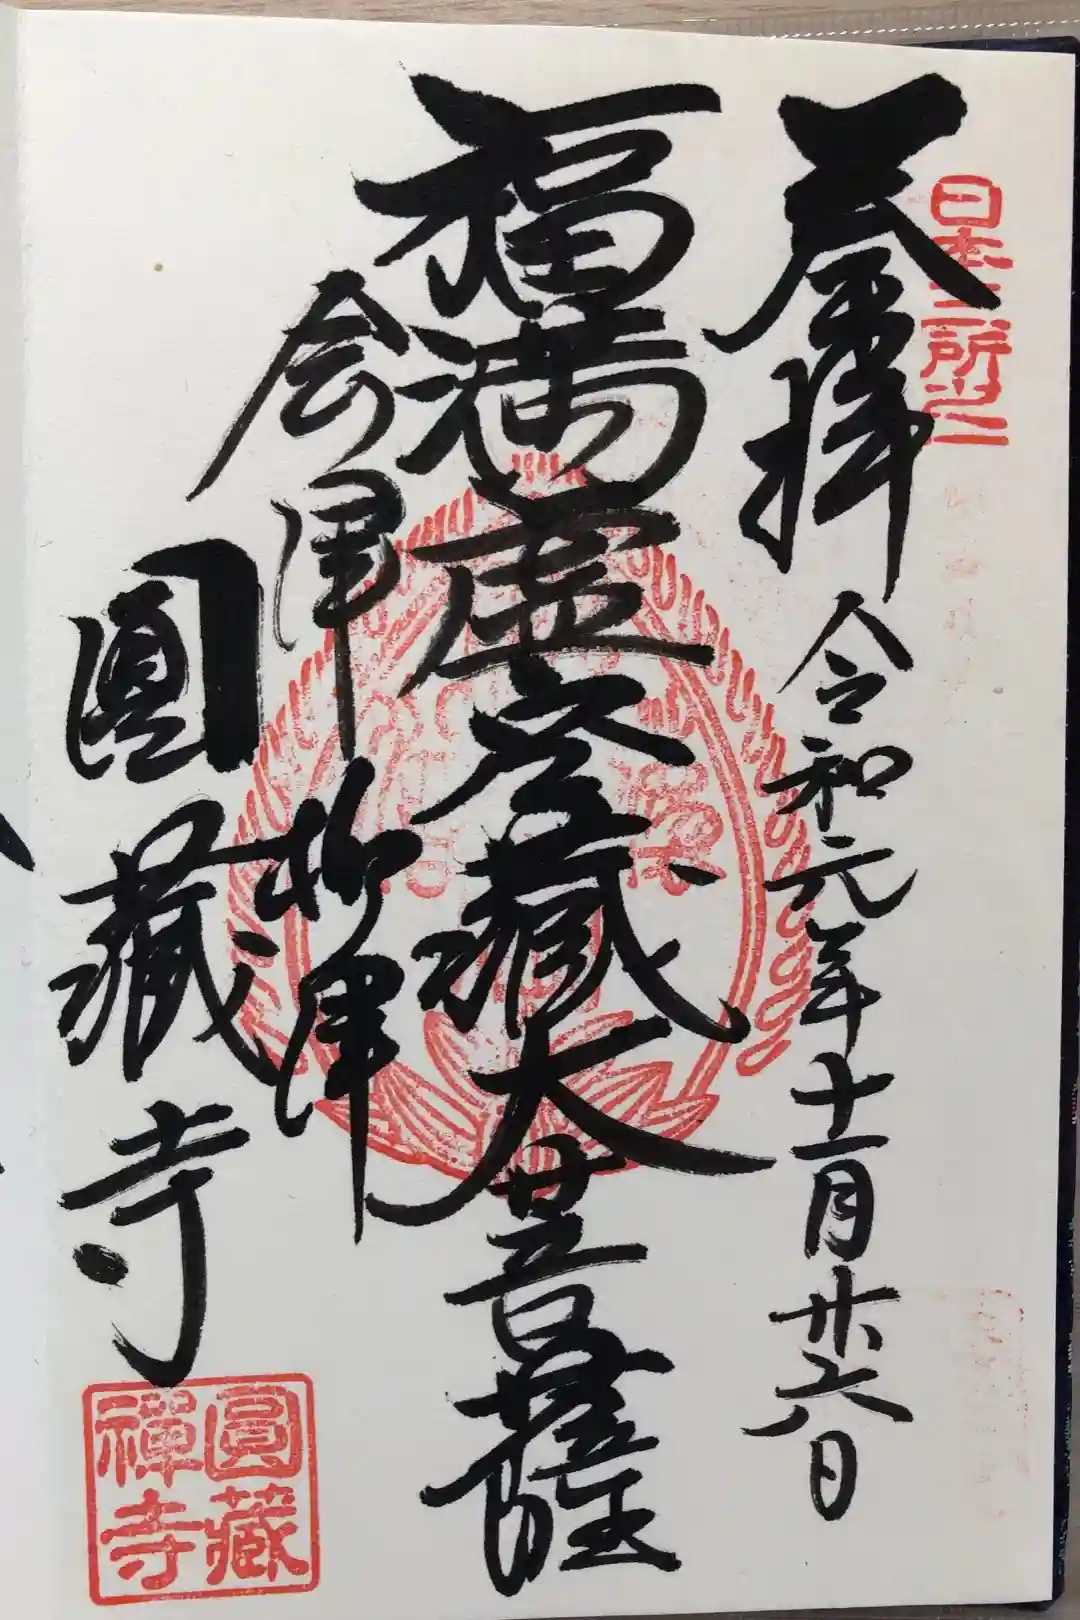 日本三所之一
奉拝 令和元年十一月廿六日
福満虚空蔵大菩薩
会津 柳津
圓藏寺
圓藏
禅寺